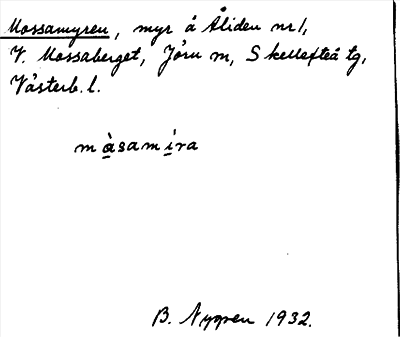 Mossamyren, myr å Åliden nr 1,
V. Mossaberget, Jörn m, Skellefteå tg,
Västerb. l.
màsamíra
B. Nygren 1932.